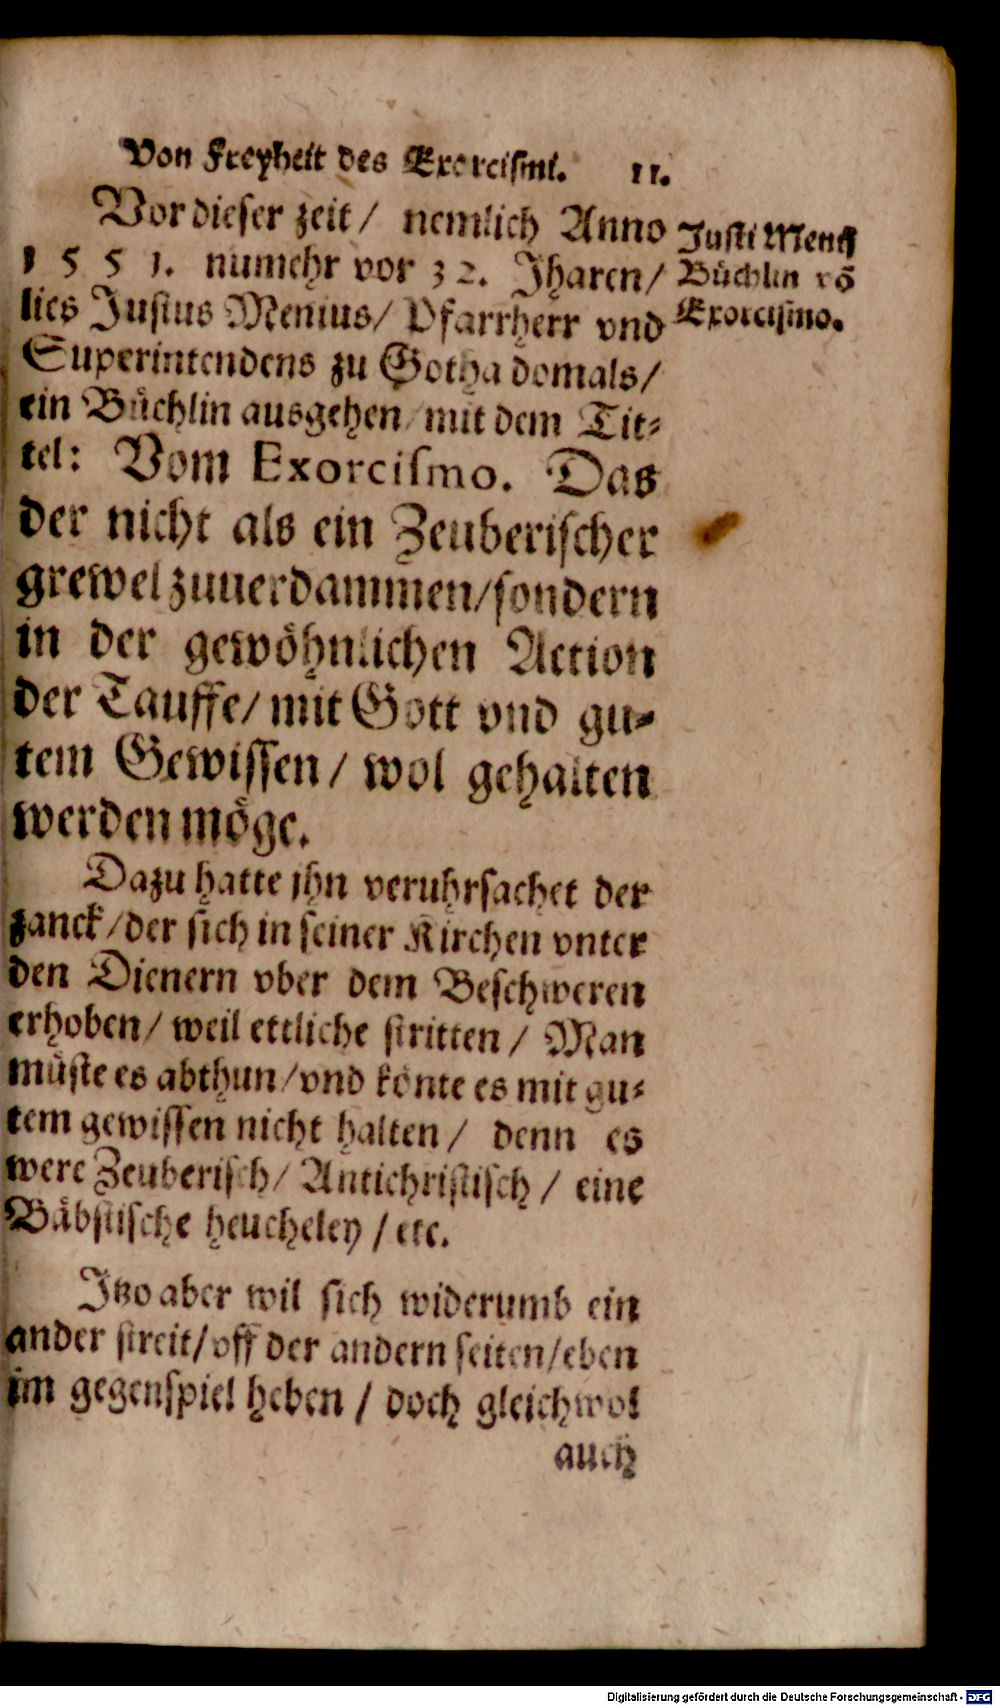 Von Freyheit des Exorcismi. 11.
Vor dieser zeit / nemlich Anno
1551. numehr vor 32. Jharen /
lies Justus Menius / Pfarrherr vnd
Superintendens zu Gotha domals /
ein Büchlin ausgehen / mit dem Tit-
tel: Vom Exorcismo. Das
der nicht als ein Zeuberischer
grewel zuuerdammen / sondern
in der gewöhnlichen Action
der Tauffe / mit Gott vnd gu-
tem Gewissen / wol gehalten
werden möge.
Justi Menij
Büchlin võ
Exorcismo.
Dazu hatte jhn veruhrsachet der
zanck / der sich in seiner Kirchen vnter
den Dienern vber dem Beschweren
erhoben / weil ettliche stritten / Man
müste es abthun / vnd könte es mit gu-
tem gewissen nicht halten / denn es
were Zeuberisch / Antichristisch / eine
Bäbstische heucheley / etc.
Jtzo aber wil sich widerumb ein
ander streit / vff der andern seiten / eben
im gegenspiel heben / doch gleichwol
auch
Digitalisierung gefördert durch die Deutsche Forschungsgemeinschaft - DFG